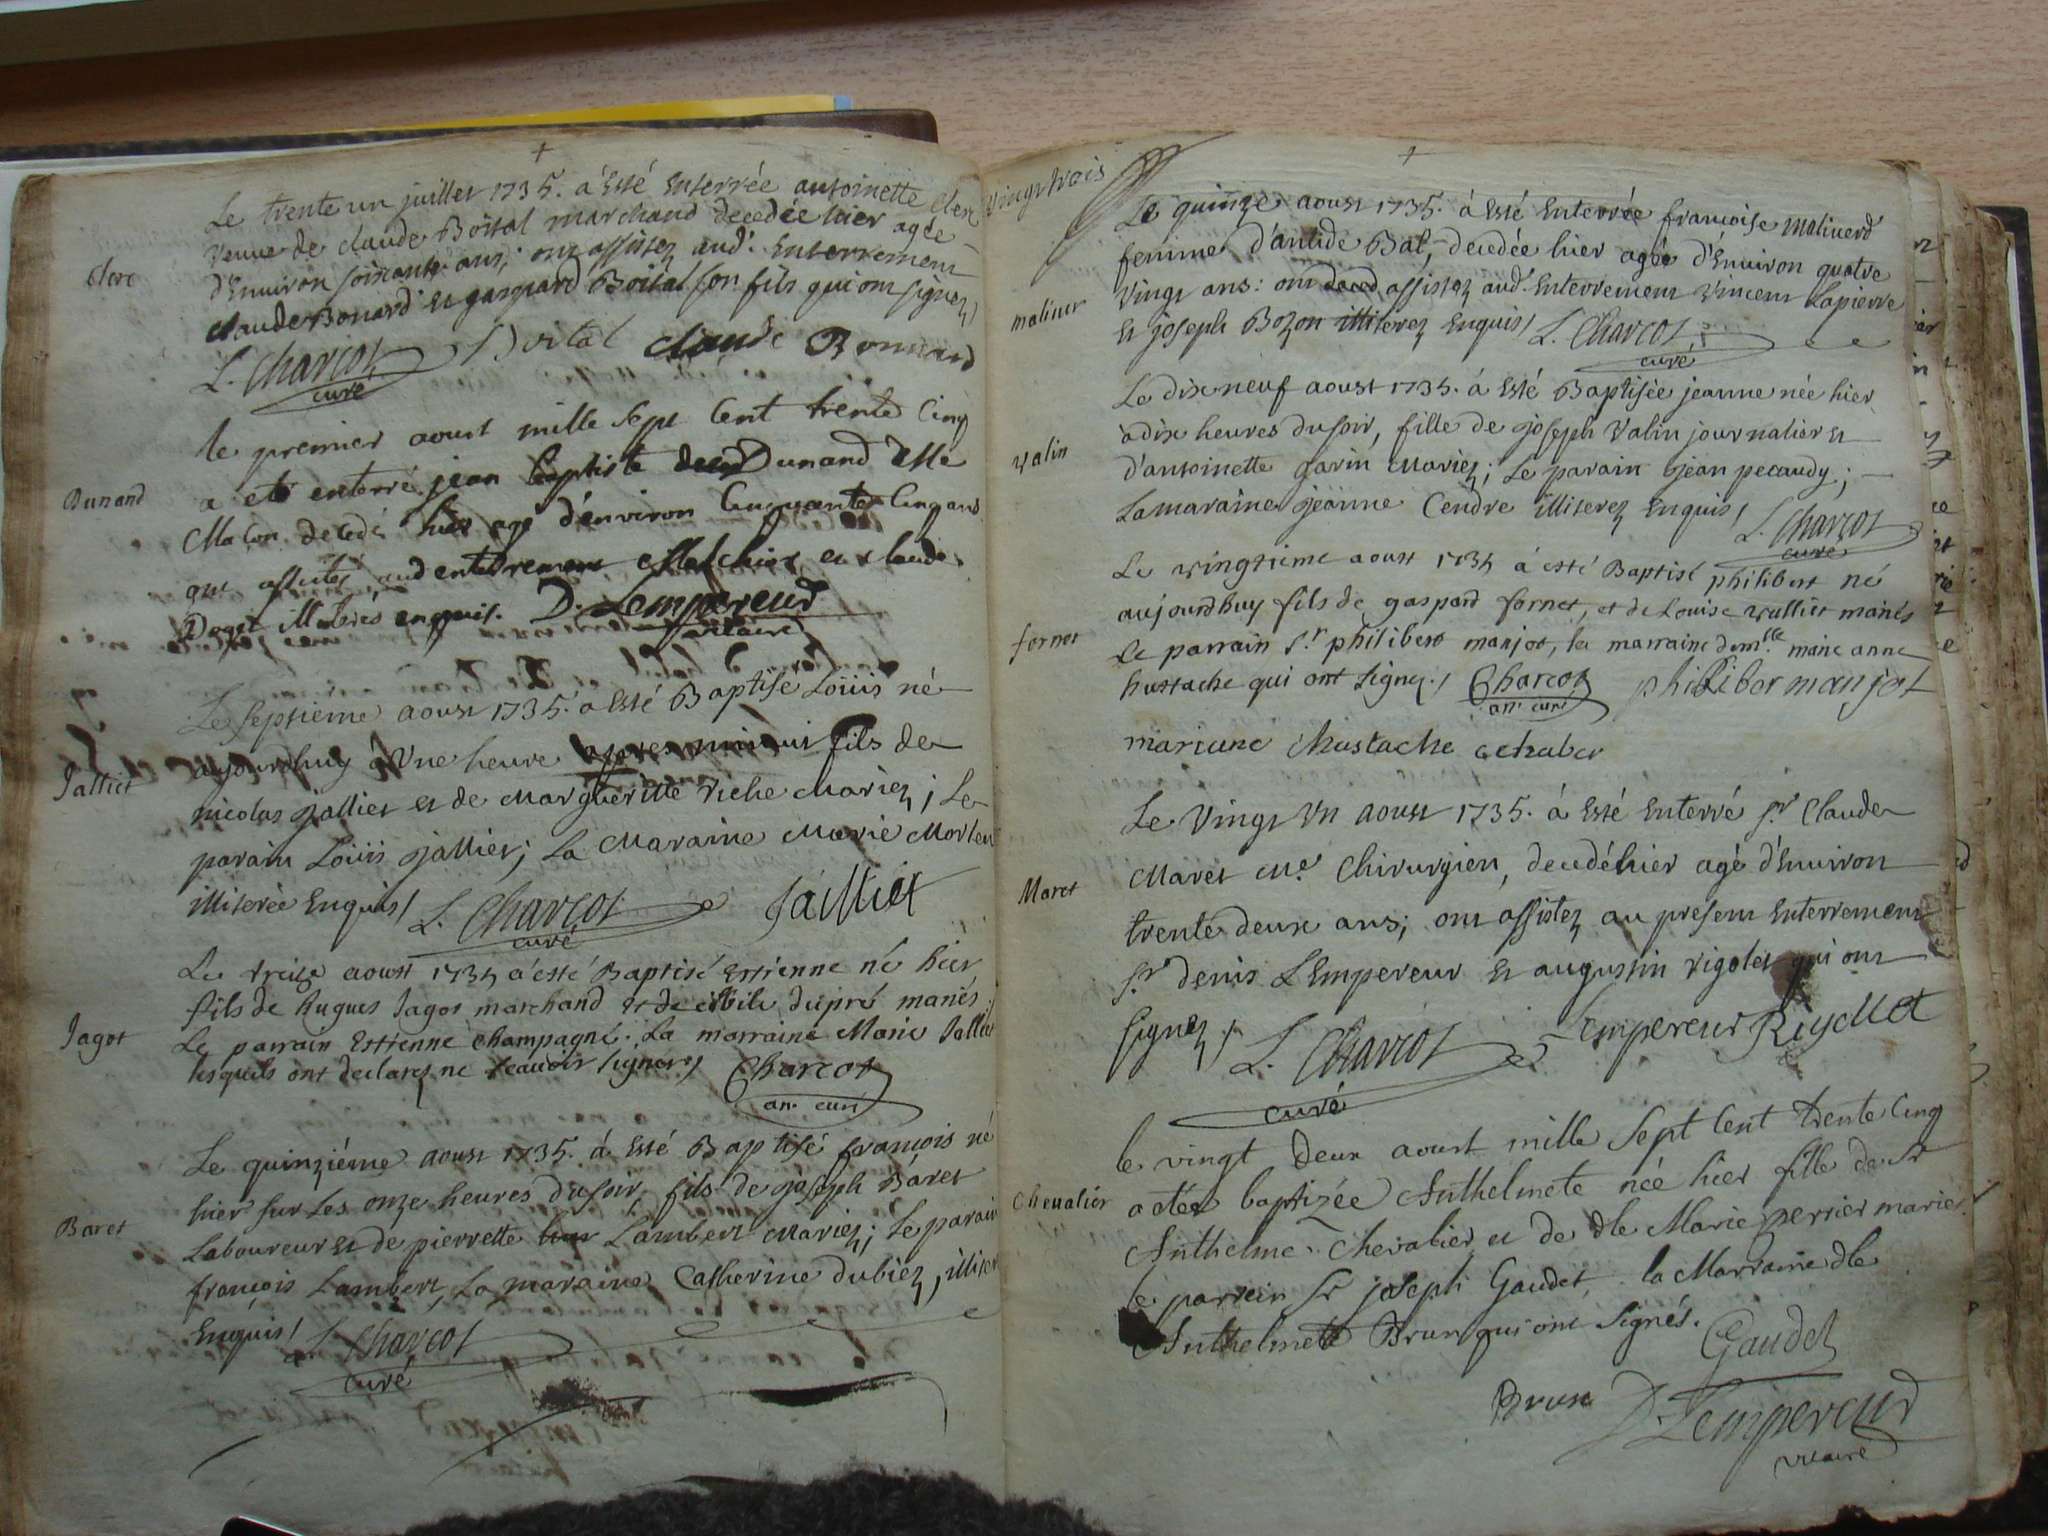 Le trente un juillet 1735. á Esté Enterrée antoinette Clerc
veuve de claude Boital marchand decedée hier agée
d'Environ soixante ans; ont assistez aud. Enterrement
claude Bonard et gaspard Boital son fils qui ont signez
Clerc
L. Charcot Boital claude Bonnard
curé
le premier aoust mille sept Cent trente Cinq
a eté enterré jean baptiste Dunand
Macon decedé hier agé d'environ Cinquante Cinq ans
Dunand
ont assistés aud enterrement Melchior et claude
Doget illiteres enquis. D. Lempereur
vicaire
Le septieme aoust 1735. á Esté Baptisé Loüis né
aujourdhuy á Une heure apres minuit fils de
Jalliet
nicolas jalliet et de Marguerite riche Mariez; Le
parain Loüis jalliet; La Maraine Marie
illiterée Enquis / L. Charcot Jailliet
curé
Le treize aoust 1735 á esté Baptisé Estienne né hier
fils de hugues Jagot marchand et de dupré mariés
Jagot
Le parrain Estienne Champagne. La marraine Marie Jalliet
lesquels ont declarez ne scauoir signer / Charcot
an. curé
Le quinziéme aoust 1735. á Esté Baptisé françois né
hier sur Les onze heures du soir, fils de joseph Báret
Baret
Laboureur et de pierrette Lambert Mariez; Le parain
françois Lambert, La maraine Catherine dubiez, illiter
Enquis / L. Charcot
curé
vingt trois
Le quinze aoust 1735. á Esté Enterrée françoise Molinerd
femme d'antide Bal, decedée hier agée d'Environ quatre
Vingt ans: ont assistez aud. Enterrement Vincent Lapierre
moliner
et joseph Bozon illiterez Enquis / L. Charcot
curé
Le dix neuf aoust 1735. á Esté Baptisée jeanne née hier
a dix heures du soir, fille de joseph Valin journalier et
valin
d'antoinette garin Mariez; Le parain jean pecaudy;
La maraine jeanne Cendre illiterez Enquis / L. Charcot
curé
Le vingtieme aoust 1735 á esté Baptisé philibert né
aujourdhuy fils de gaspard fornet, et de Louise vulliet mariés
fornet
Le parrain Sr. philibert manjot, la marraine demlle. marie anne
hustache qui ont signez. / Charcot phillibermanjot
an. curé
mariane
Le Vingt Un aoust 1735. á Esté Enterré Sr. Claude
Maret Me. Chirurgien, decedé hier agé d'Environ
Maret
trente deux ans; ont assistez au present Enterrement
Sr. denis LEmpereur et augustin rigolet qui ont
signez / L. Charcot Lempereur Rigollet
curé
le vingt deux aoust mille Sept Cent trente Cinq
a étée baptizée Anthelmete née hier fille de Sr
Chevalier
Anthelme Chevalier et de dle Marie perrier mariez.
le parrein Sr joseph Gaudet, la Marraine dle
Anthelmete Brun qui ont signés. Gaudet
Brun D. Lempereur
vicaire